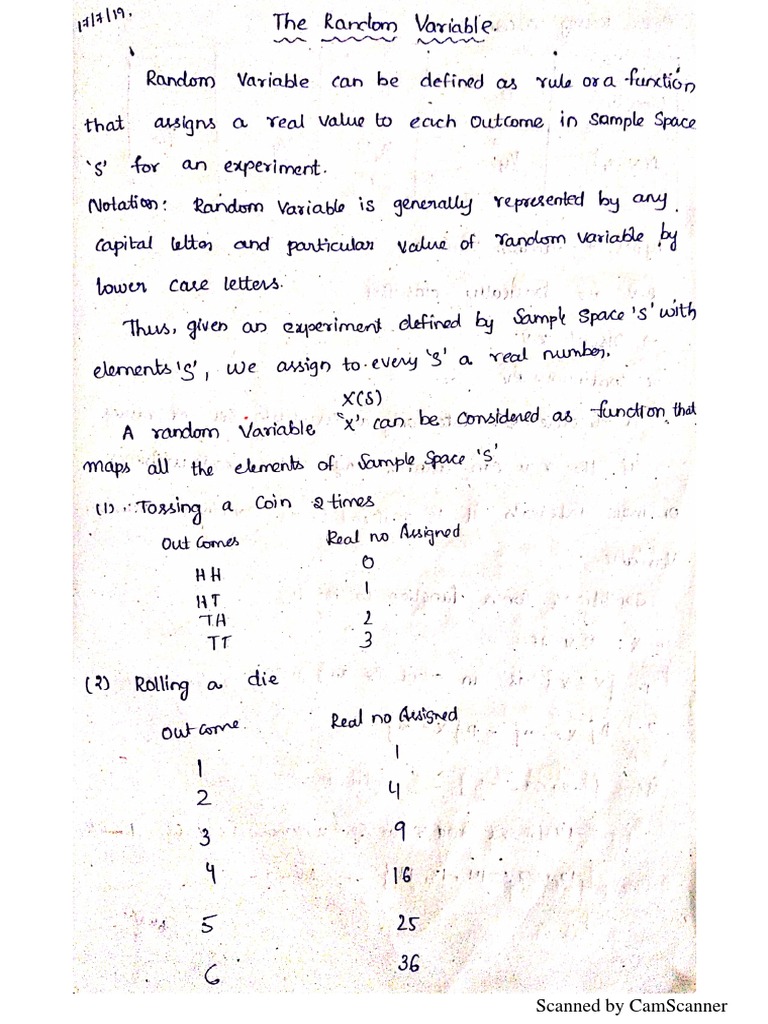 17/7/19.
The Random Variable.
Random Variable can be defined as rule or a function
that assigns a real value to each outcome in Sample Space
'S' for an experiment.
Notation: Random Variable is generally represented by any
capital letter and particular value of random variable by
lower case letters.
Thus, given an experiment defined by Sample Space 'S' with
elements 'S', we assign to every 'S' a real number.
X(S)
A random Variable 'X' can be considered as function that
maps all the elements of Sample Space 'S'
(1) Tossing a Coin 2 times
Out Comes Real no Assigned
HH 0
HT 1
TH 2
TT 3
(2) Rolling a die
Out Come Real no Assigned
1 1
2 4
3 9
4 16
5 25
6 36
Scanned by CamScanner